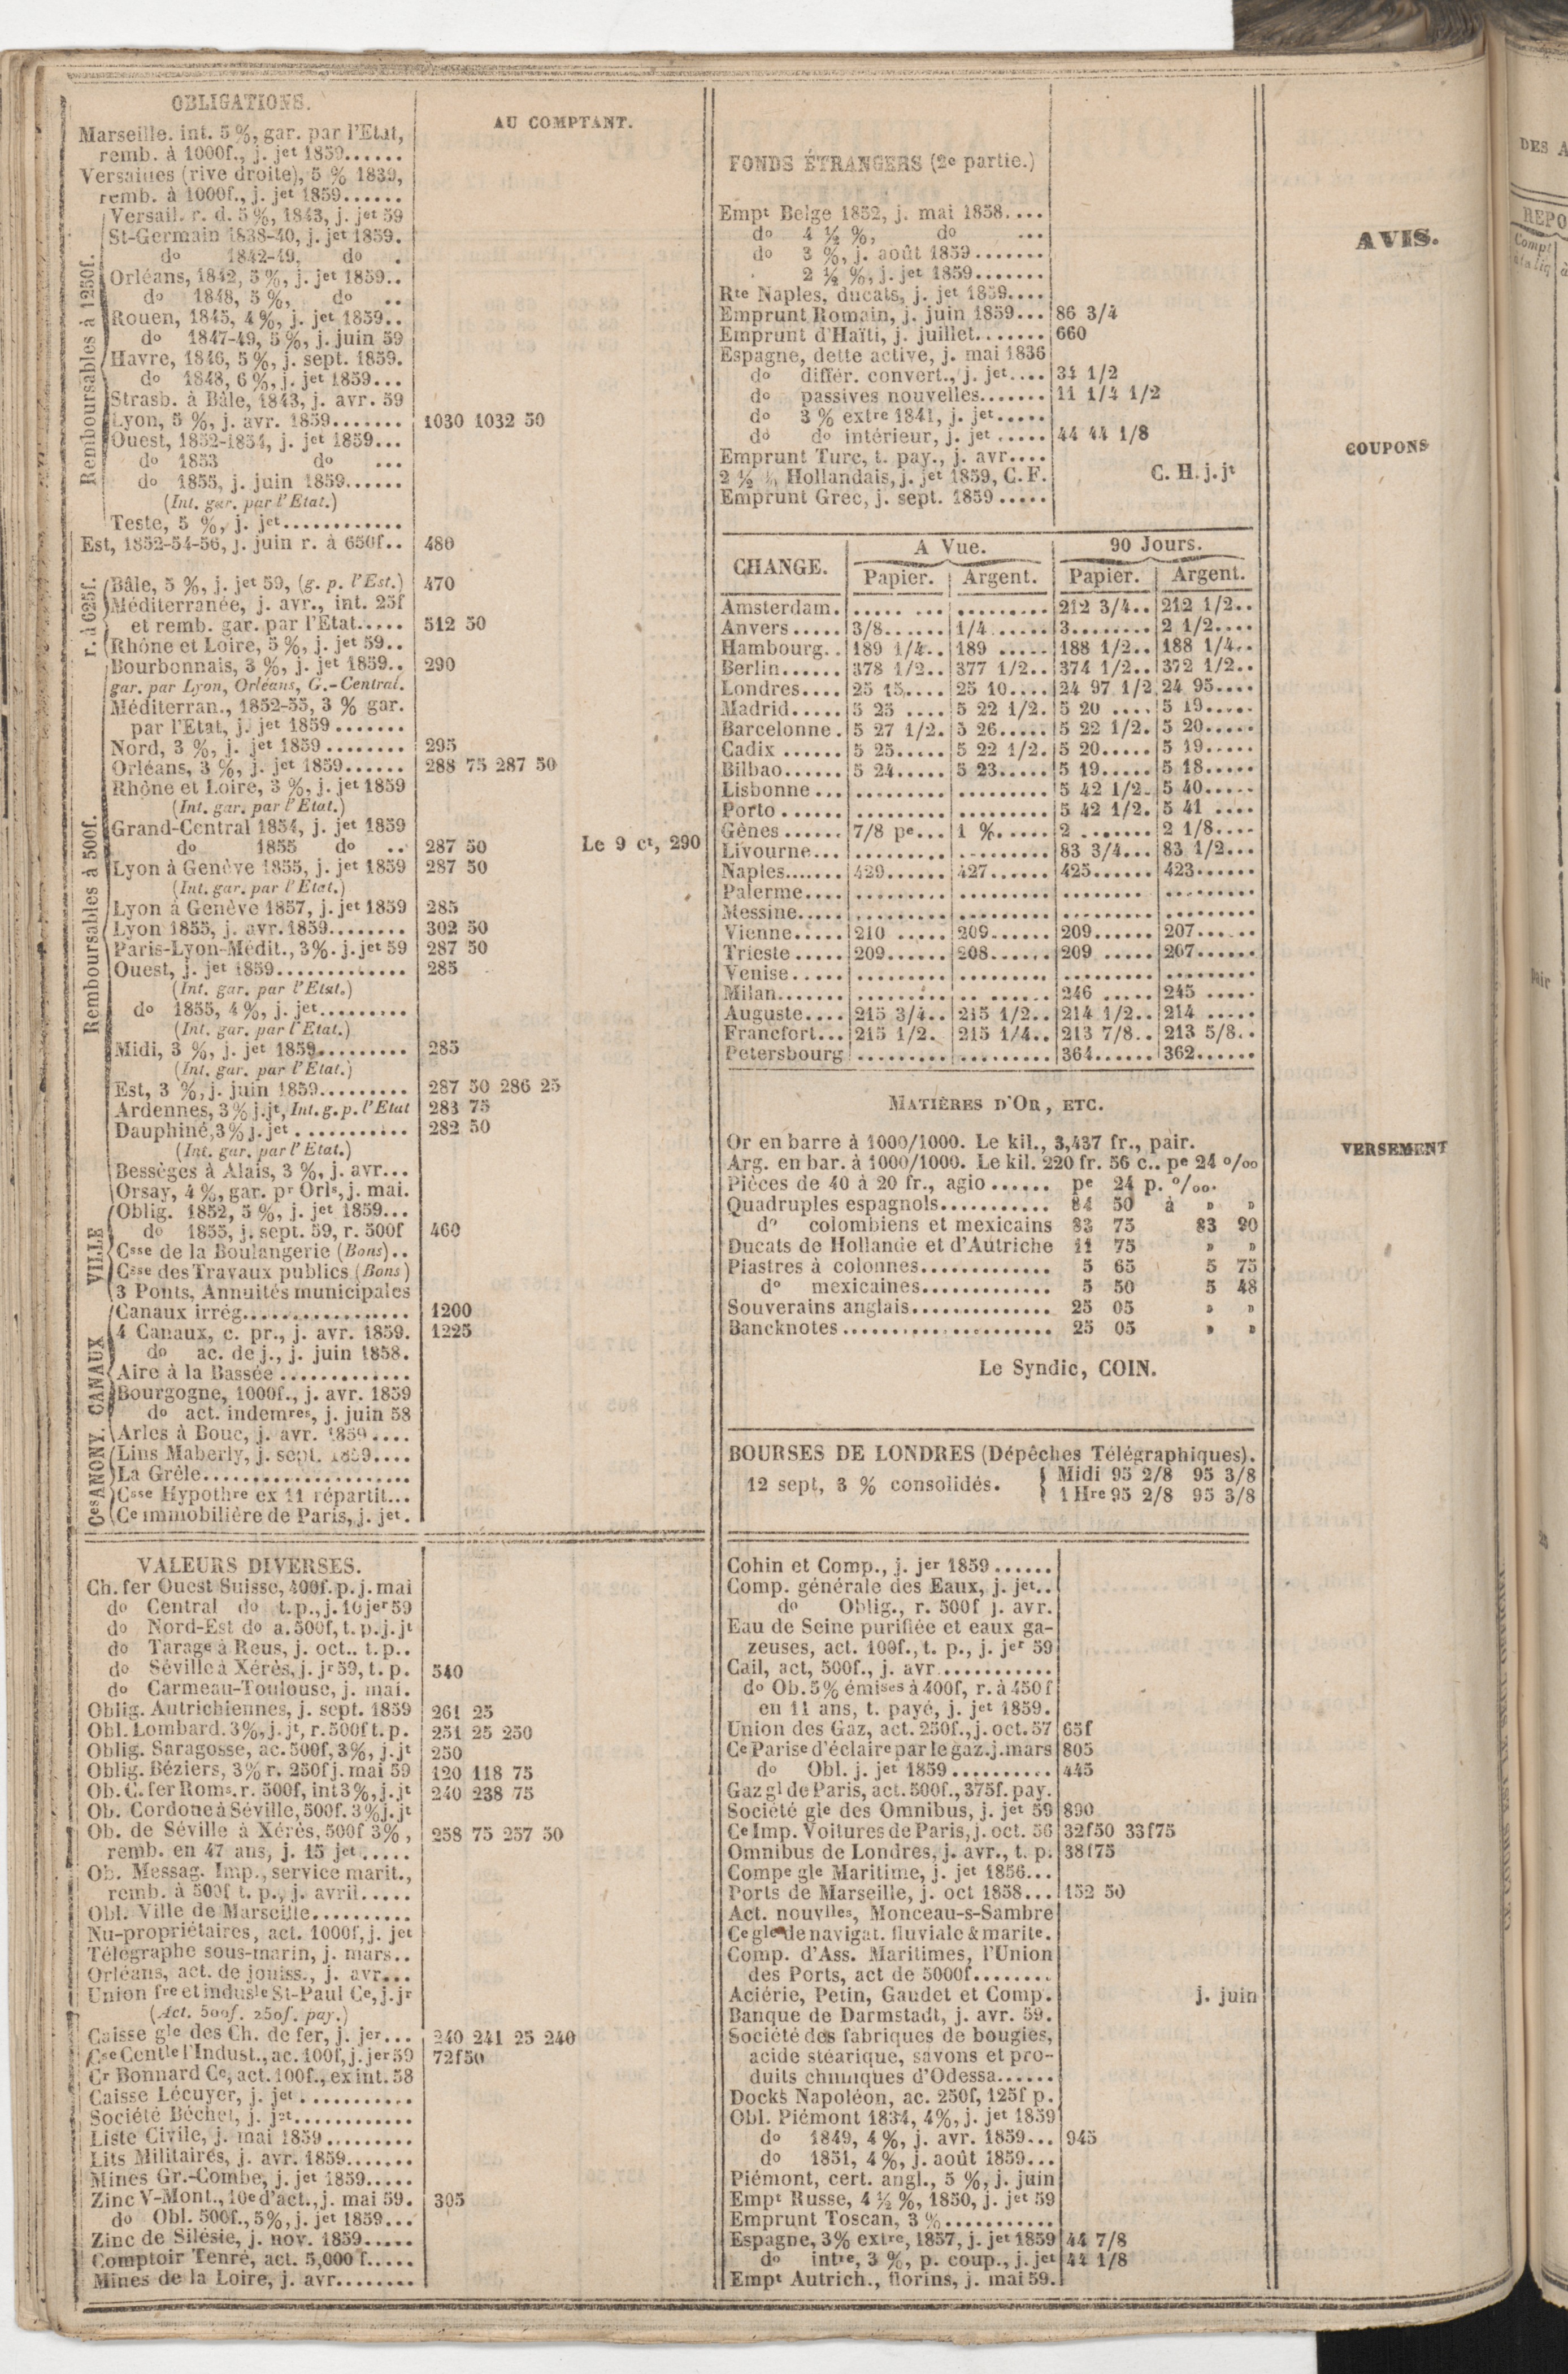 OBLIGATIONS.
AU COMPTANT.
Marseille. int. 5 %, gar. par l'Etat,
remb. à 1000f., j. jet 1859......
Versailles (rive droite), 5 % 1839,
remb. à 1000f., j. jet 1859......
Remboursables à 1250f.
Versail. r. d. 5 %, 1843, j. jet 59
St-Germain 1838-40, j. jet 1859.
do 1842-49, do .
Orléans, 1842, 5 %, j. jet 1859..
do 1848, 5 %, do ..
Rouen, 1845, 4 %, j. jet 1859..
do 1847-49, 5 %, j. juin 59
Havre, 1846, 5 %, j. sept. 1859.
do 1848, 6 %, j. jet 1859...
Strasb. à Bâle, 1843, j. avr. 59
Lyon, 5 %, j. avr. 1859....... 1030 1032 50
Ouest, 1852-1854, j. jet 1859...
do 1853 do ...
do 1855, j. juin 1859......
(Int. gar. par l'Etat.)
Teste, 5 %, j. jet............
Est, 1852-54-56, j. juin r. à 650f.. 480
r. à 625f.
Bâle, 5 %, j. jet 59, (g. p. l'Est.) 470
Méditerranée, j. avr., int. 25f
et remb. gar. par l'Etat..... 512 50
Rhône et Loire, 5 %, j. jet 59..
Remboursables à 500f.
Bourbonnais, 3 %, j. jet 1859.. 290
gar. par Lyon, Orléans, G.-Central.
Méditerran., 1852-55, 3 % gar.
par l'Etat, j. jet 1859.......
Nord, 3 %, j. jet 1859........ 295
Orléans, 3 %, j. jet 1859...... 288 75 287 50
Rhône et Loire, 3 %, j. jet 1859
(Int. gar. par l'Etat.)
Grand-Central 1854, j. jet 1859
do 1855 do .. 287 50 Le 9 ct, 290
Lyon à Genève 1855, j. jet 1859 287 50
(Int. gar. par l'Etat.)
Lyon à Genève 1857, j. jet 1859 285
Lyon 1855, j. avr. 1859........ 302 50
Paris-Lyon-Médit., 3%. j. jet 59 287 50
Ouest, j. jet 1859............. 285
(Int. gar. par l'Etat.)
do 1855, 4 %, j. jet.........
(Int. gar. par l'Etat.)
Midi, 3 %, j. jet 1859......... 285
(Int. gar. par l'Etat.)
Est, 3 %, j. juin 1859......... 287 50 286 25
Ardennes, 3 % j. jt, Int. g. p. l'Etat 283 75
Dauphiné, 3 % j. jet........... 282 50
(Int. gar. par l'Etat.)
Bessèges à Alais, 3 %, j. avr...
Orsay, 4 %, gar. pr Orls, j. mai.
VILLE
Oblig. 1852, 5 %, j. jet 1859...
do 1855, j. sept. 59, r. 500f 460
Csse de la Boulangerie (Bons)..
Csse des Travaux publics (Bons)
3 Ponts, Annuités municipales
CANAUX
Canaux irrég................. 1200
4 Canaux, c. pr., j. avr. 1859. 1225
do ac. de j., j. juin 1858.
Aire à la Bassée.............
Bourgogne, 1000f., j. avr. 1859
do act. indemres, j. juin 58
Arles à Bouc, j. avr. 1859....
Ces ANONY.
Lins Maberly, j. sept. 1859....
La Grêle.....................
Csse Hypothre ex 11 répartit...
Ce immobilière de Paris, j. jet.
VALEURS DIVERSES.
Ch. fer Ouest Suisse, 400f. p. j. mai
do Central do t. p., j. 10 jer 59
do Nord-Est do a. 500f, t. p. j. jt
do Tarage à Reus, j. oct.. t. p..
do Séville à Xérès, j. jr 59, t. p. 540
do Carmeau-Toulouse, j. mai.
Oblig. Autrichiennes, j. sept. 1859 261 25
Obl. Lombard. 3%, j. jt, r. 500f t. p. 251 25 250
Oblig. Saragosse, ac. 500f, 3%, j. jt 250
Oblig. Béziers, 3% r. 250f j. mai 59 120 118 75
Ob. C. fer Roms. r. 500f, int 3%, j. jt 240 238 75
Ob. Cordoue à Séville, 500f. 3% j. jt
Ob. de Séville à Xérès, 500f 3%, 258 75 257 50
remb. en 47 ans, j. 15 jet.....
Ob. Messag. Imp., service marit.,
remb. à 500f t. p., j. avril.....
Obl. Ville de Marseille..........
Nu-propriétaires, act. 1000f, j. jet
Télégraphe sous-marin, j. mars..
Orléans, act. de jouiss., j. avr...
Union fre et indusle St-Paul Ce, j. jr
(Act. 500f. 250f. pay.)
Caisse gle des Ch. de fer, j. jer... 240 241 25 240
Cse Centle l'Indust., ac. 100f, j. jer 59 72f50
Cr Bonnard Ce, act. 100f., ex int. 58
Caisse Lécuyer, j. jet...........
Société Béchet, j. jet............
Liste Civile, j. mai 1859.........
Lits Militaires, j. avr. 1859.......
Mines Gr.-Combe, j. jet 1859.....
Zinc V-Mont., 10e d'act., j. mai 59. 305
do Obl. 500f., 5%, j. jet 1859...
Zinc de Silésie, j. nov. 1859.....
Comptoir Tenré, act. 5,000 f.....
Mines de la Loire, j. avr........
FONDS ÉTRANGERS (2e partie.)
Empt Belge 1852, j. mai 1858....
do 4 ½ %, do ...
do 3 %, j. août 1859.......
2 ½ %, j. jet 1859.......
Rte Naples, ducats, j. jet 1859....
Emprunt Romain, j. juin 1859... 86 3/4
Emprunt d'Haïti, j. juillet....... 660
Espagne, dette active, j. mai 1836
do différ. convert., j. jet.... 34 1/2
do passives nouvelles....... 11 1/4 1/2
do 3 % extre 1841, j. jet.....
do do intérieur, j. jet..... 44 44 1/8
Emprunt Turc, t. pay., j. avr....
2 ½ % Hollandais, j. jet 1859, C. F. C. H. j. jt
Emprunt Grec, j. sept. 1859.....
CHANGE. A Vue. 90 Jours.
Papier. Argent. Papier. Argent.
Amsterdam. ..... ... ......... 212 3/4.. 212 1/2..
Anvers..... 3/8...... 1/4...... 3........ 2 1/2....
Hambourg.. 189 1/4.. 189 ..... 188 1/2.. 188 1/4..
Berlin...... 378 1/2.. 377 1/2.. 374 1/2.. 372 1/2..
Londres.... 25 15.... 25 10.... 24 97 1/2 24 95....
Madrid..... 5 25 .... 5 22 1/2. 5 20 .... 5 19.....
Barcelonne. 5 27 1/2. 5 26..... 5 22 1/2. 5 20.....
Cadix ...... 5 25..... 5 22 1/2. 5 20..... 5 19.....
Bilbao...... 5 24..... 5 23..... 5 19..... 5 18.....
Lisbonne... ......... ......... 5 42 1/2. 5 40.....
Porto ...... ......... ......... 5 42 1/2. 5 41 ....
Gênes...... 7/8 pe... 1 %..... 2 ....... 2 1/8....
Livourne... ......... ......... 83 3/4... 83 1/2...
Naples...... 429...... 427...... 425...... 423......
Palerme.... ......... ......... ........ .........
Messine..... ......... ......... ......... .........
Vienne..... 210 ..... 209...... 209...... 207......
Trieste..... 209...... 208...... 209 ..... 207......
Venise..... ......... ......... ......... .........
Milan....... ......... ......... 246 ..... 245 .....
Auguste.... 215 3/4.. 215 1/2.. 214 1/2.. 214 .....
Francfort... 215 1/2. 215 1/4.. 213 7/8.. 213 5/8..
Petersbourg ......... ......... 364...... 362......
MATIÈRES D'OR, ETC.
Or en barre à 1000/1000. Le kil., 3,437 fr., pair.
Arg. en bar. à 1000/1000. Le kil. 220 fr. 56 c.. pe 24 o/oo
Pièces de 40 à 20 fr., agio...... pe 24 p. o/oo.
Quadruples espagnols........... 84 50 à » »
do colombiens et mexicains 83 75 83 90
Ducats de Hollande et d'Autriche 11 75 » »
Piastres à colonnes............. 5 65 5 75
do mexicaines............. 5 50 5 48
Souverains anglais.............. 25 05 » »
Bancknotes..................... 25 05 » »
Le Syndic, COIN.
BOURSES DE LONDRES (Dépêches Télégraphiques).
12 sept, 3 % consolidés. Midi 95 2/8 95 3/8
1 Hre 95 2/8 95 3/8
Cohin et Comp., j. jer 1859......
Comp. générale des Eaux, j. jet..
do Oblig., r. 500f j. avr.
Eau de Seine purifiée et eaux ga-
zeuses, act. 100f., t. p., j. jer 59
Cail, act, 500f., j. avr............
do Ob. 5% émises à 400f, r. à 450f
en 11 ans, t. payé, j. jet 1859.
Union des Gaz, act. 250f., j. oct. 57 65f
Ce Parise d'éclaire par le gaz. j. mars 805
do Obl. j. jet 1859.......... 445
Gaz gl de Paris, act. 500f., 375f. pay.
Société gle des Omnibus, j. jet 59 890
Ce Imp. Voitures de Paris, j. oct. 56 32f50 33f75
Omnibus de Londres, j. avr., t. p. 38f75
Compe gle Maritime, j. jet 1856...
Ports de Marseille, j. oct 1858... 152 50
Act. nouvlles, Monceau-s-Sambre
Ce gle de navigat. fluviale & marite.
Comp. d'Ass. Maritimes, l'Union
des Ports, act de 5000f........
Aciérie, Petin, Gaudet et Comp. j. juin
Banque de Darmstadt, j. avr. 59.
Société des fabriques de bougies,
acide stéarique, savons et pro-
duits chimiques d'Odessa......
Docks Napoléon, ac. 250f, 125f p.
Obl. Piémont 1834, 4%, j. jet 1859
do 1849, 4 %, j. avr. 1859... 945
do 1851, 4 %, j. août 1859...
Piémont, cert. angl., 5 %, j. juin
Empt Russe, 4 ½ %, 1850, j. jet 59
Emprunt Toscan, 3 %...........
Espagne, 3% extre, 1857, j. jet 1859 44 7/8
do intre, 3 %, p. coup., j. jet 44 1/8
Empt Autrich., florins, j. mai 59.
AVIS.
COUPONS
VERSEMENT
DES A
REPO
Compt